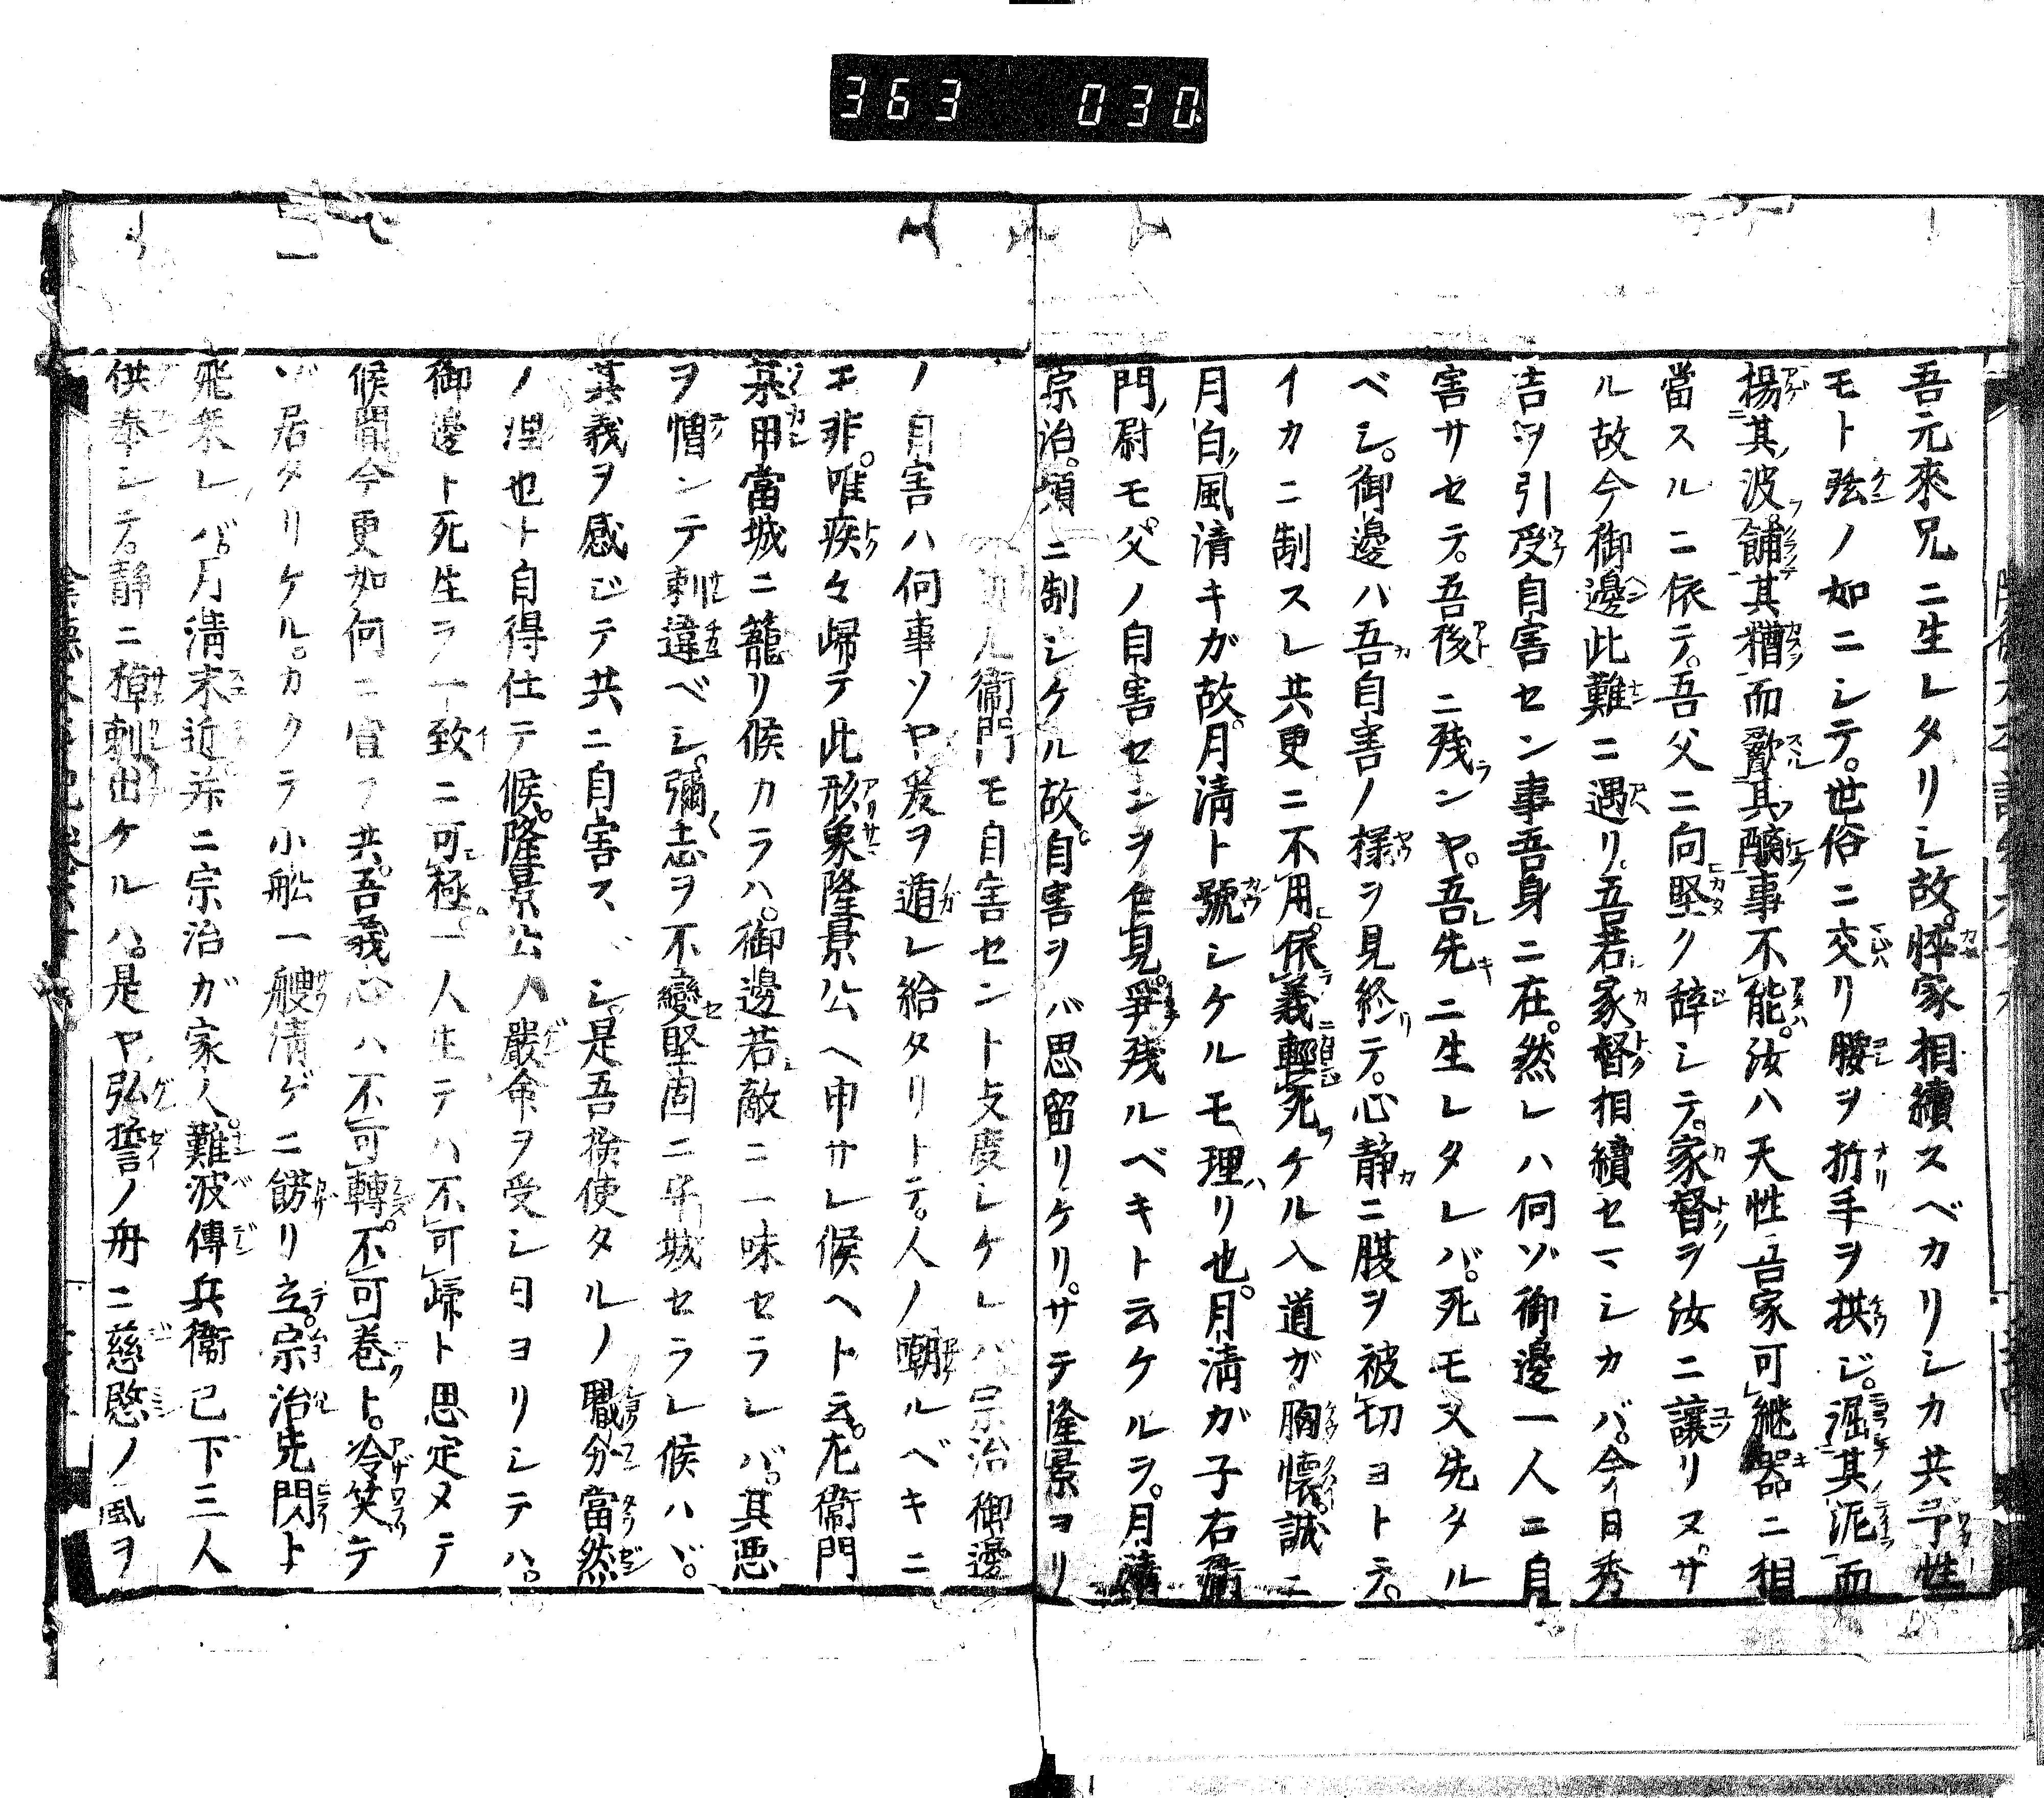 363 030
吾元來兄ニ生レタリシ故。悴家相續スベカリシカ共予性
モト弦ノ如ニシテ。世俗ニ交リ腰ヲ折手ヲ拱ジ。淈其泥而
揚其波餔其糟而歠其醨事不能。汝ハ天性吾家可継器ニ相
當スルニ依テ。吾父ニ向堅ク辞シテ。家督ヲ汝ニ讓リヌ。サ
ル故今御邊此難ニ遇リ。吾若家督相續セマシカバ。今日秀
吉ヲ引受自害セン事吾身ニ在。然レハ何ゾ御邊一人ニ自
害サセテ。吾後ニ残ランヤ。吾先ニ生レタレバ。死モ又先タル
ベシ。御邊ハ吾自害ノ様ヲ見終テ。心静ニ腹ヲ被切ヨトテ。
イカニ制スレ共更ニ不用。依義輕死ケル入道ガ胸懐。誠ニ
月白風清キガ故。月清ト號シケルモ理リ也。月清ガ子右衛
門尉モ。父ノ自害センヲ乍見。爭残ルベキト云ケルヲ。月清
宗治。頻ニ制シケル故。自害ヲバ思留リケリ。サテ隆景ヨリ
衞門モ自害セント支度シケレバ宗治御邊
ノ自害ハ何事ソヤ爰ヲ遁レ給タリトテ。人ノ嘲ルベキニ
モ非。唯疾々歸テ此形象隆景公ヘ申サレ候ヘト云。左衞門
某甲當城ニ籠リ候カラハ。御邊若敵ニ一味セラレバ。其悪
ヲ憎ンテ刺違ベシ。彌志ヲ不變堅固ニ守城セラレ候ハヾ。
其義ヲ感ジテ共ニ自害スベシ。是吾撿使タルノ職分當然
ノ理也ト自得仕テ候。隆景公ノ嚴命ヲ受シ日ヨリシテハ。
御邊ト死生ヲ一致ニ可極。一人生テハ不可歸ト思定メテ
候間今更如何ニ宣フ共。吾義心ハ不可轉。不可巻ト。冷笑テ
ゾ居タリケル。カクテ小舩一艘清ゲニ餝リ立。宗治先閃ト
飛乗レバ。月清末近并ニ宗治ガ家人。難波傳兵衞已下三人
供奉シテ。静ニ棹刺出ケルハ。是ヤ弘誓ノ舟ニ慈愍ノ風ヲ